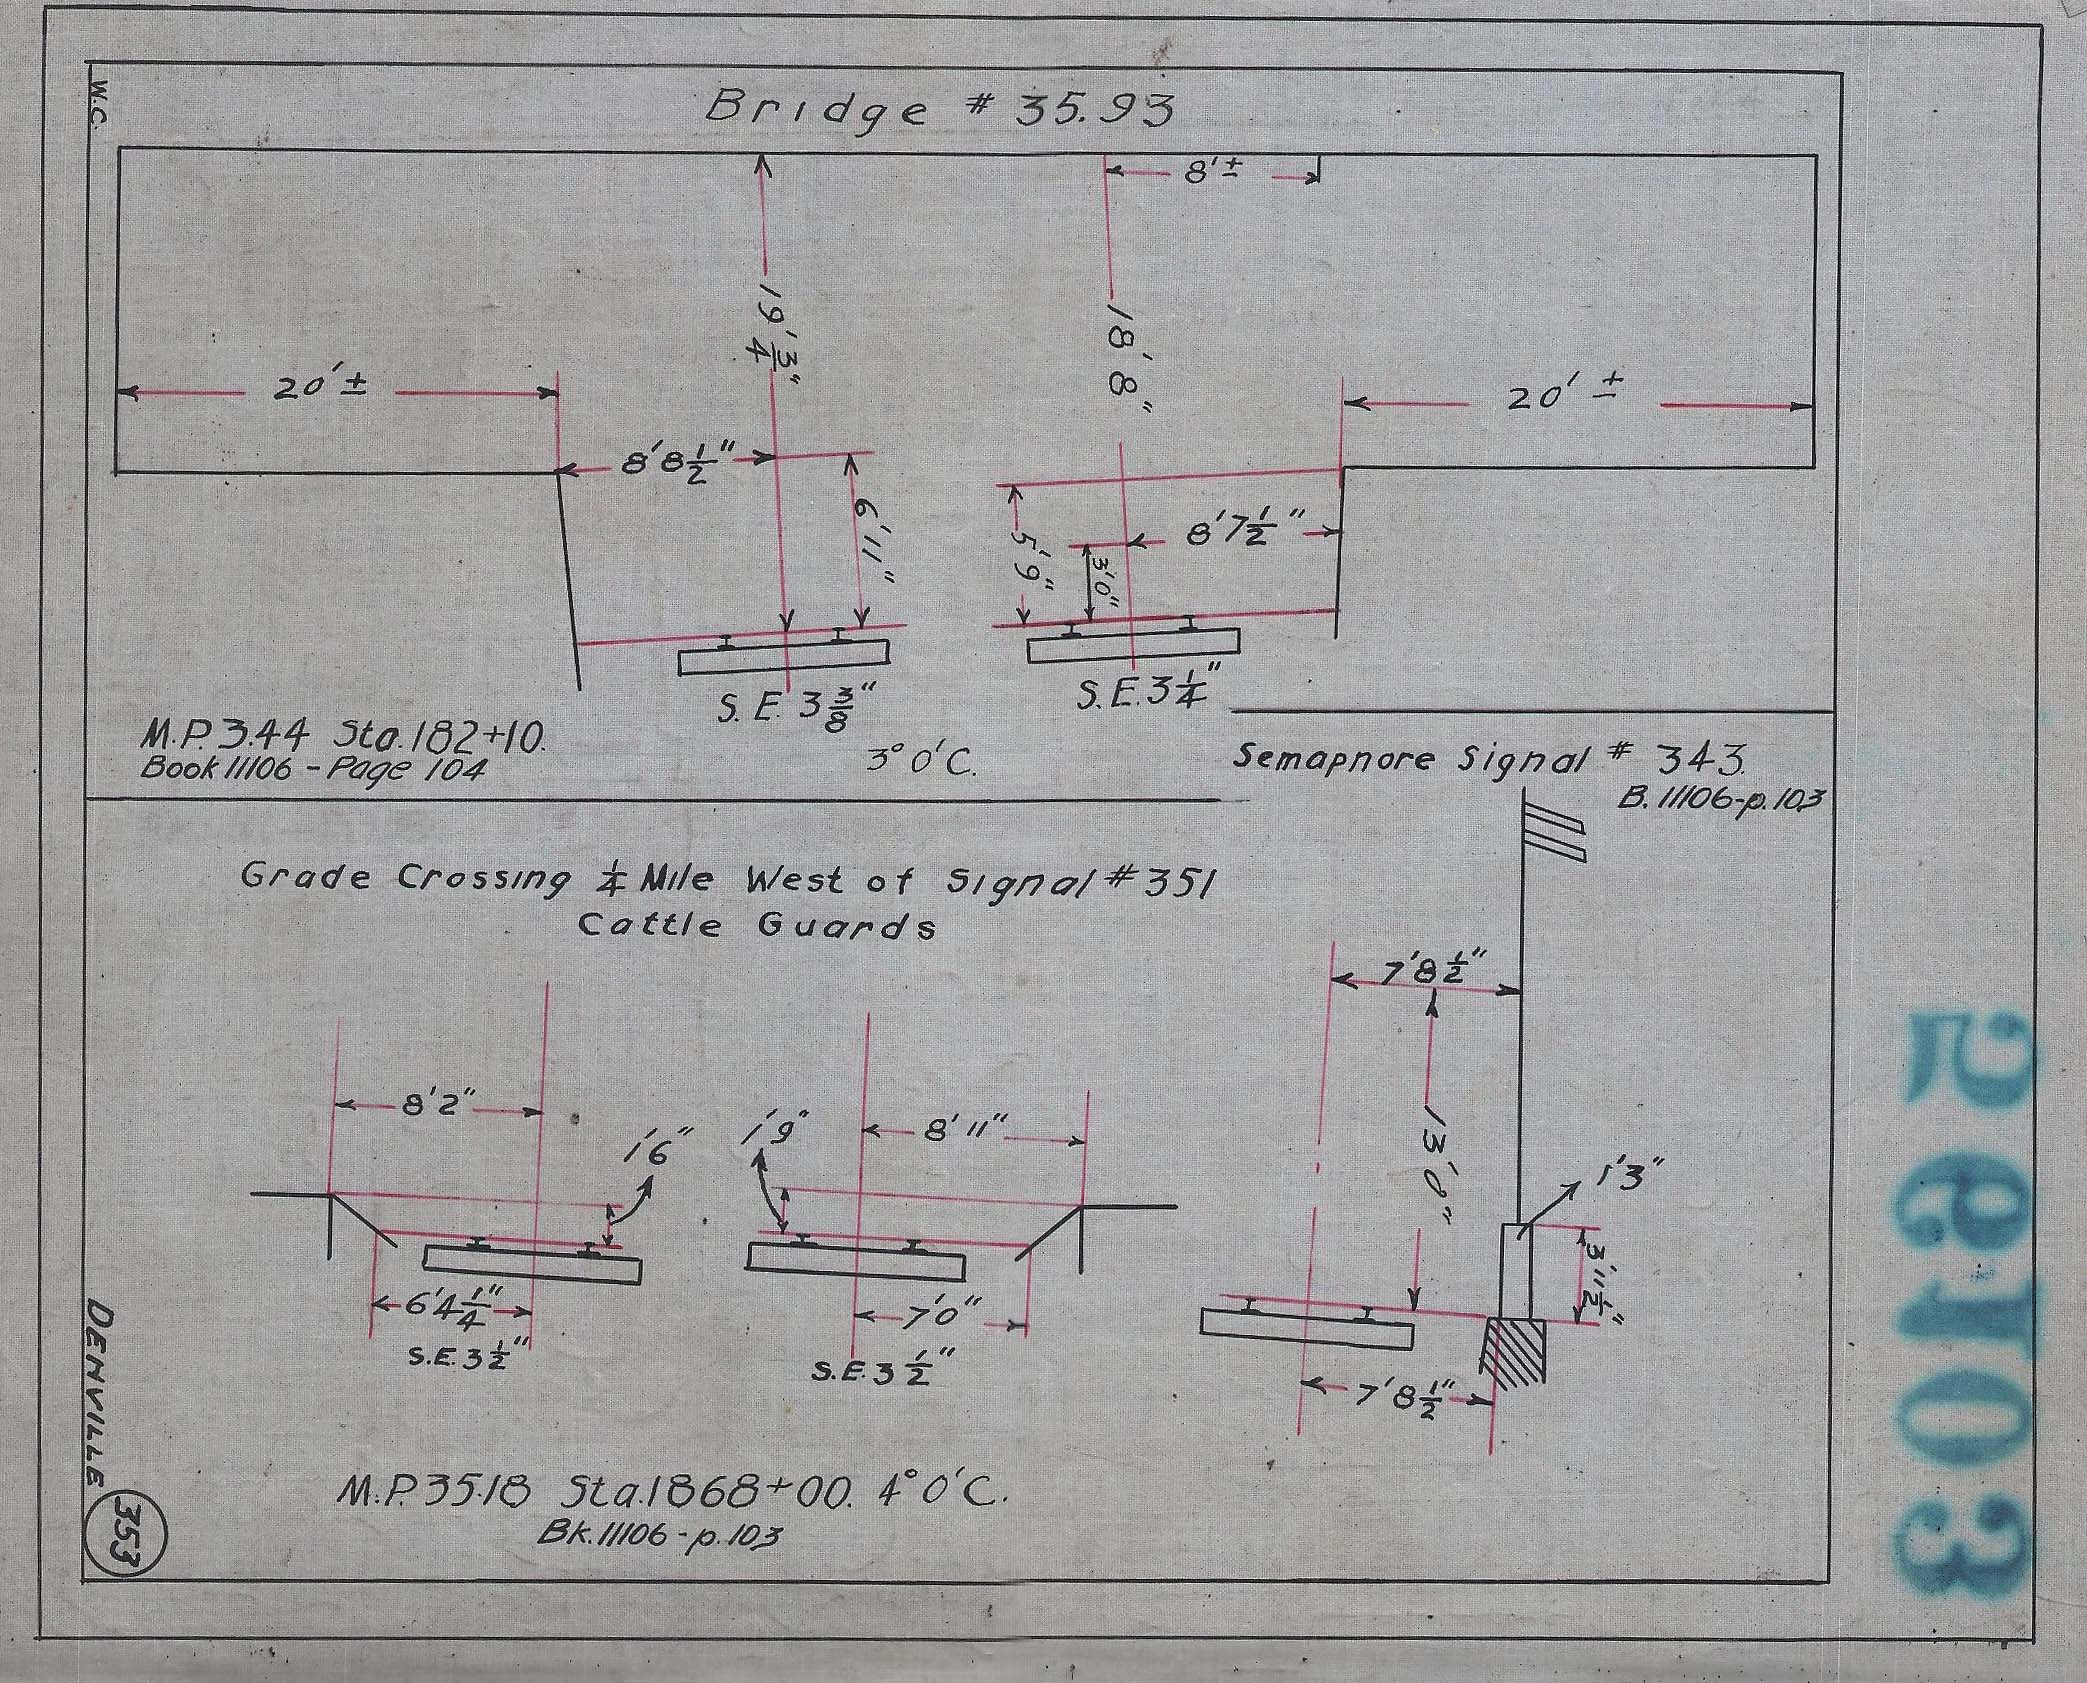 W.C.
Bridge # 35.93
8'±
19' 3/4"
18' 8"
20'±
20' ±
8' 8 1/2"
6' 11"
5' 9"
3' 0"
8' 7 1/2"
S.E. 3 3/8"
S.E. 3 1/4"
M.P. 3.44 Sta. 182+10.
Book 11106 - Page 104
3° 0' C.
Semapnore Signal # 343.
B. 11106-p. 103
Grade Crossing 1/4 Mile West of Signal # 351
Cattle Guards
7' 8 1/2"
13' 0"
1' 3"
3' 11 1/2"
7' 8 1/2"
8' 2"
1' 6"
1' 9"
8' 11"
6' 4 1/4"
S.E. 3 1/2"
7' 0"
S.E. 3 1/2"
M.P. 35.18 Sta. 1868+00. 4° 0' C.
Bk. 11106 - p. 103
DENVILLE
353
29103